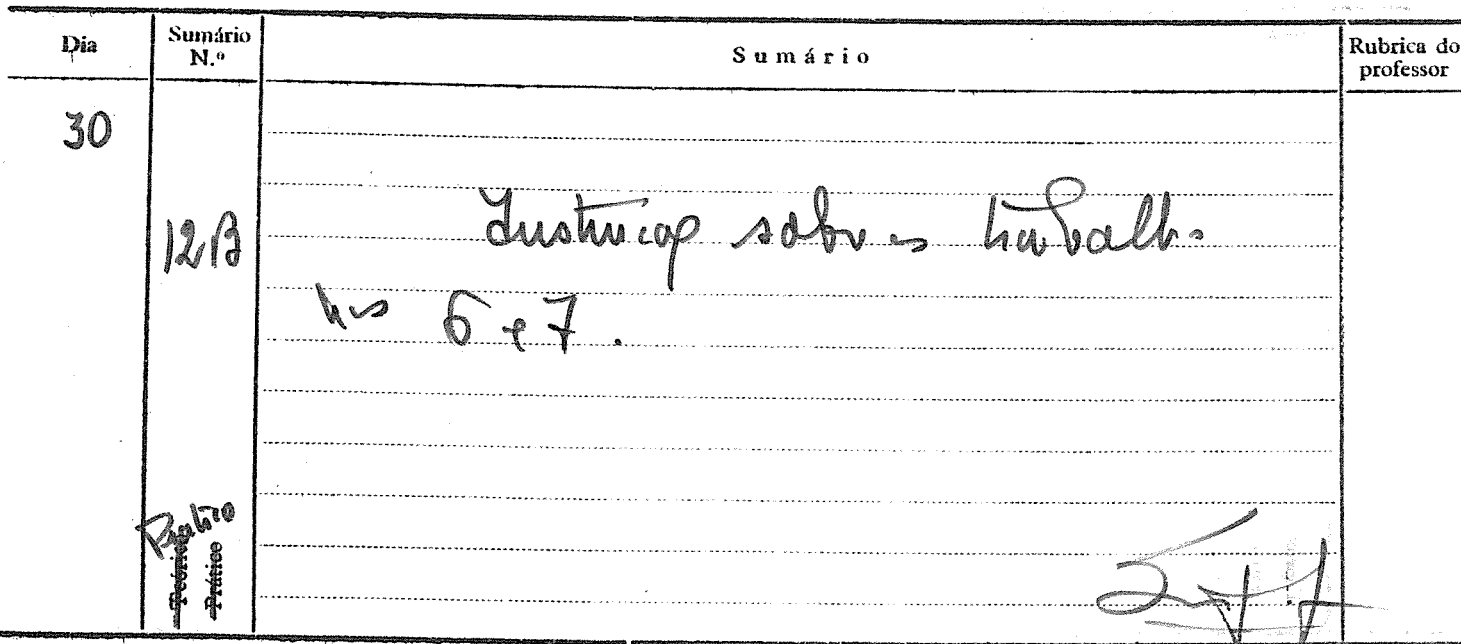 Dia
Sumário N.º
Sumário
Rubrica do professor
30
12B
Instrução sobre os trabalhos
nos 6 e 7.
Prático
Teórico
Prático